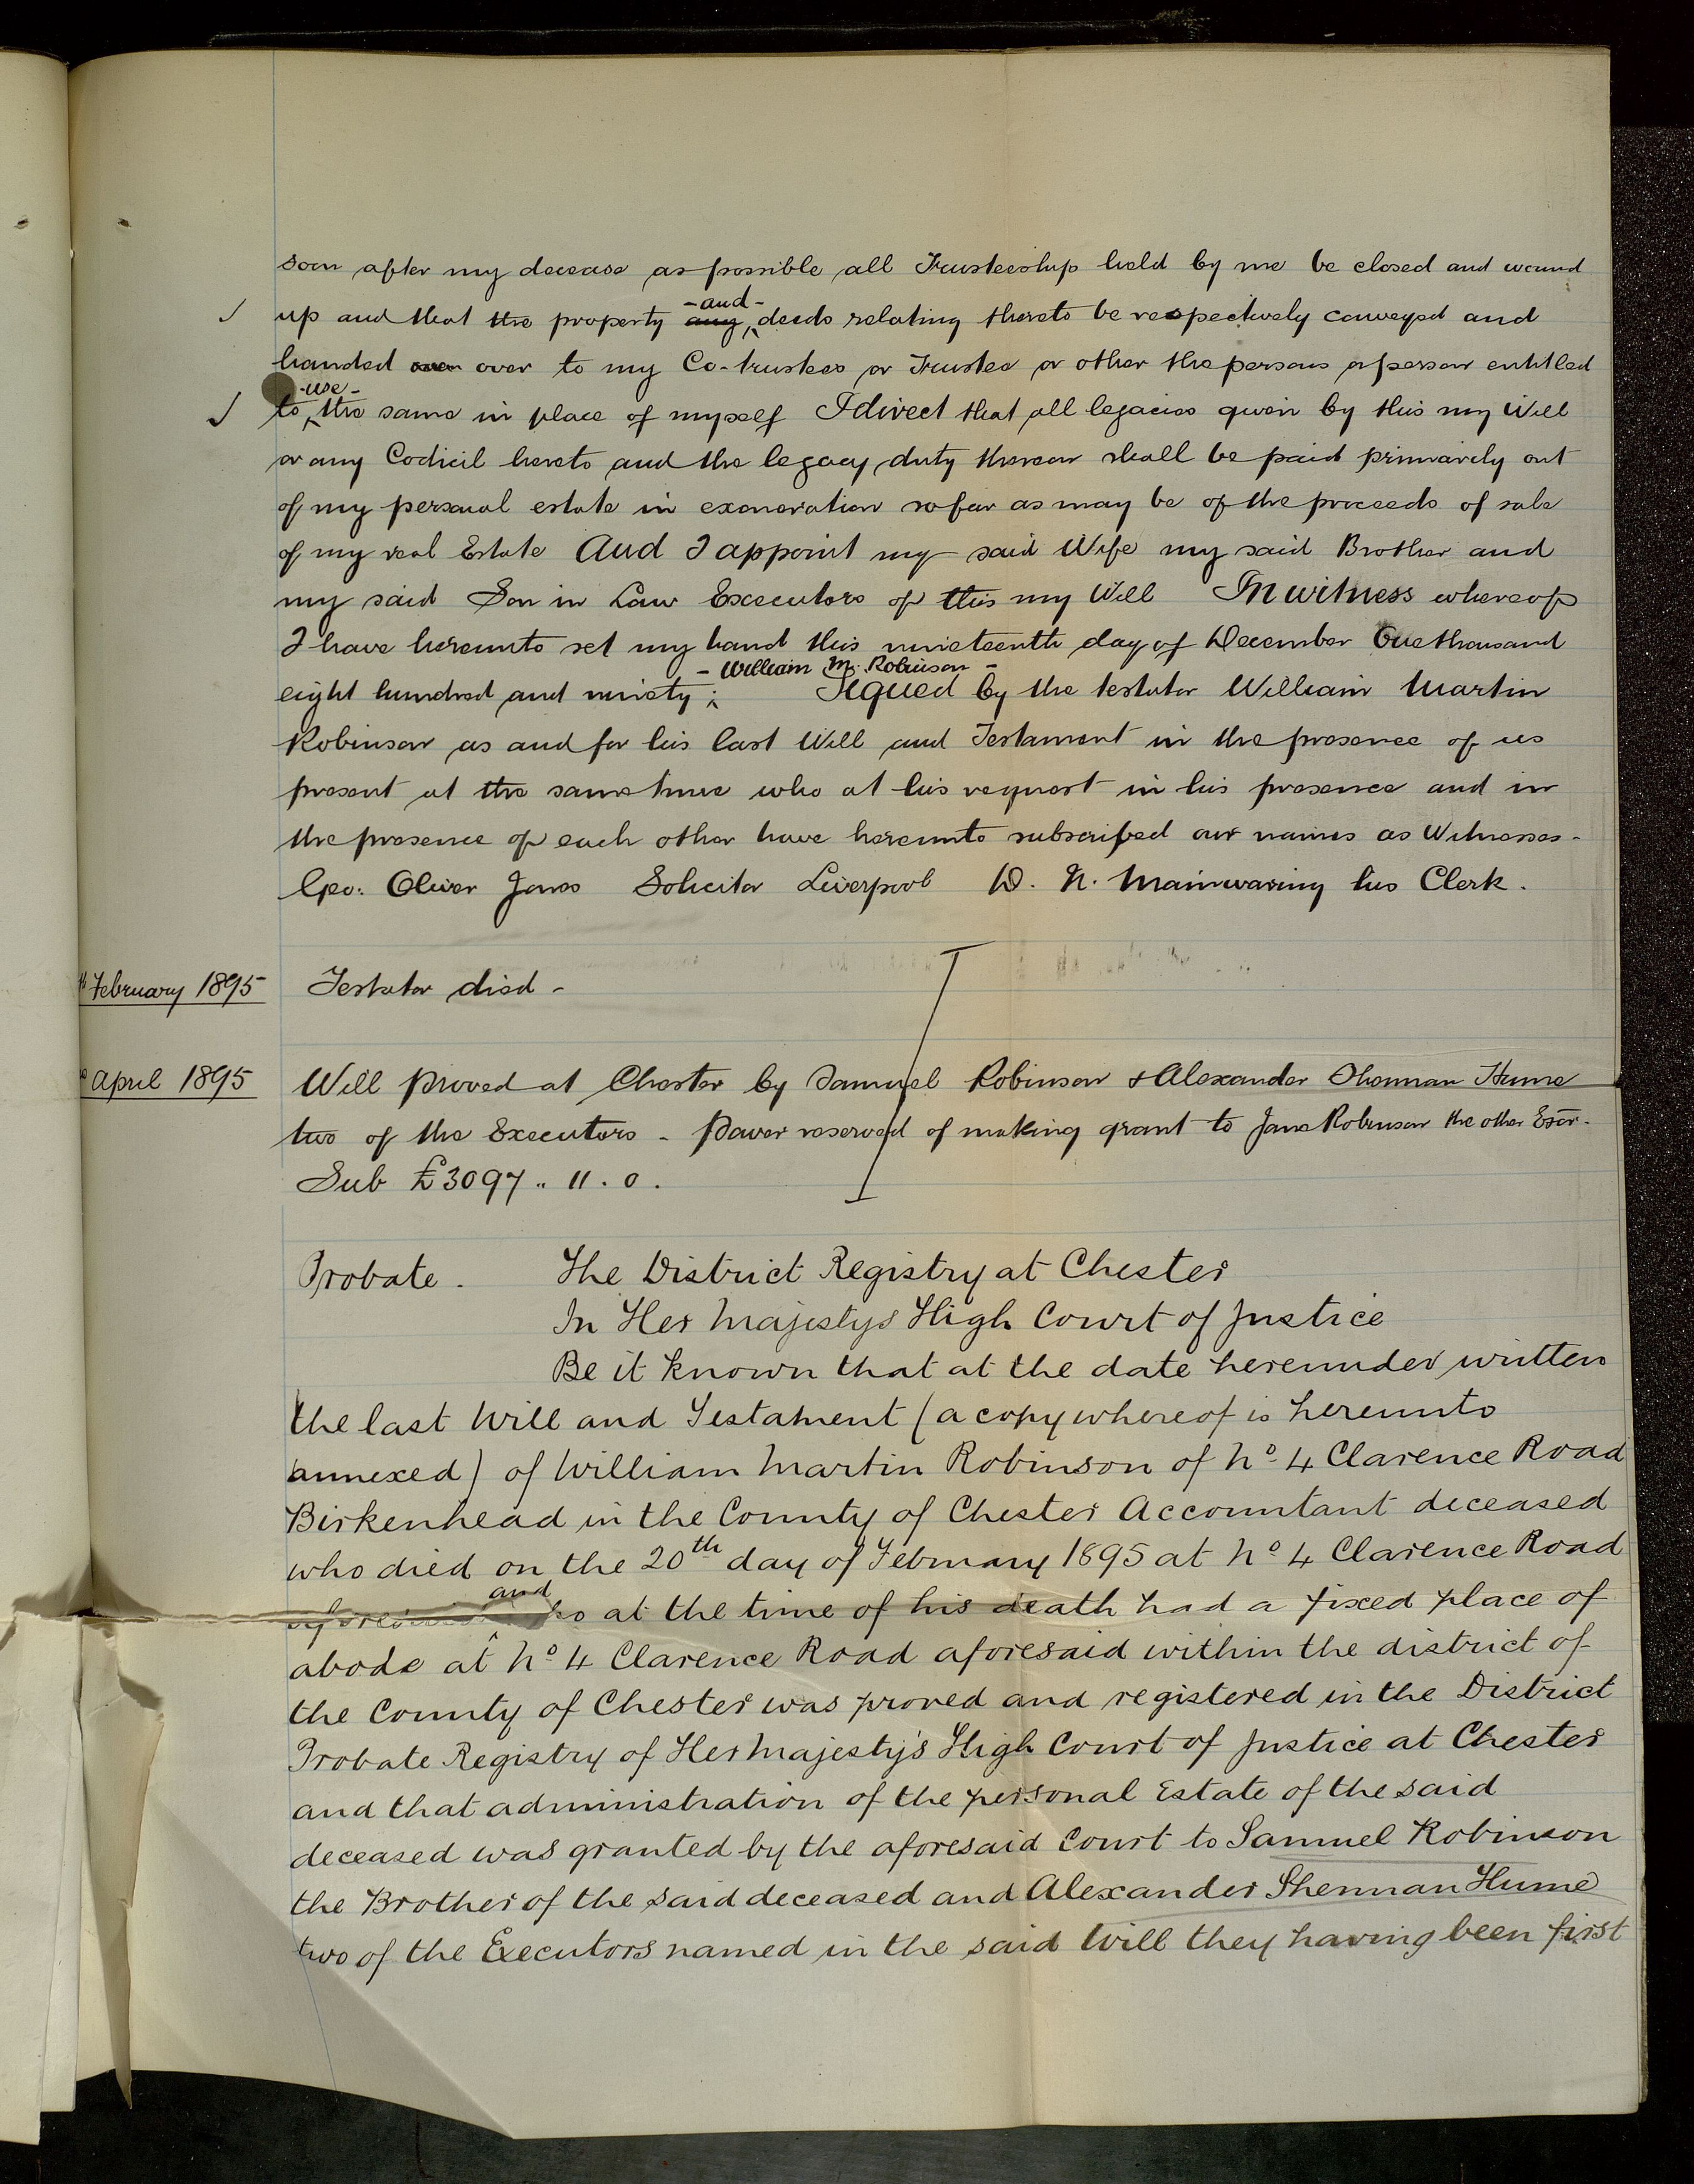 soon after my decease as possible all Trusteeship held by me be closed and wound
up and that the property any and deeds relating thereto be respectively conveyed and
handed over over to my Co-trustees or Trustee or other the persons or person entitled
to use the same in place of myself I direct that all legacies given by this my Will
or any Codicil hereto and the legacy duty thereon shall be paid primarily out
of my personal estate in exoneration so far as may be of the proceeds of sale
of my real Estate And I appoint my said Wife my said Brother and
my said Son in Law Executors of this my Will In witness whereof
I have hereunto set my hand this nineteenth day of December One thousand
eight hundred and ninety; - William M. Robinson - Signed by the testator William Martin
Robinson as and for his last Will and Testament in the presence of us
present at the same time who at his request in his presence and in
the presence of each other have hereunto subscribed our names as Witnesses -
Geo: Oliver Jones Solicitor Liverpool D. N. Mainwaring his Clerk.
February 1895 Testator died -
April 1895 Will proved at Chester by Samuel Robinson & Alexander Shennan Hume
two of the Executors - Power reserved of making grant to Jane Robinson the other Exor -
Sub £3097 .. 11 . 0 .
Probate . The District Registry at Chester
In Her Majestys High Court of Justice
Be it known that at the date hereunder written
the last Will and Testament (a copy whereof is hereunto
annexed) of William Martin Robinson of No 4 Clarence Road
Birkenhead in the County of Chester Accountant deceased
who died on the 20th day of February 1895 at No 4 Clarence Road
and at the time of his death had a fixed place of
abode at No 4 Clarence Road aforesaid within the district of
the County of Chester was proved and registered in the District
Probate Registry of Her Majesty's High Court of Justice at Chester
and that administration of the personal Estate of the said
deceased was granted by the aforesaid Court to Samuel Robinson
the Brother of the said deceased and Alexander Shennan Hume
two of the Executors named in the said Will they having been first